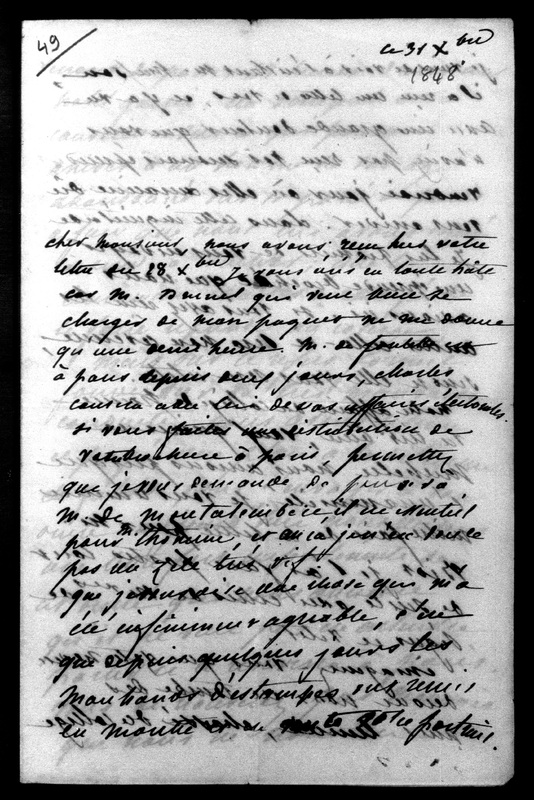 49
ce 31 Xbre
1848
cher monsieur, nous avons reçu hier votre
lettre du 28 Xbre. Je vous écris en toute hâte
car M. qui veut bien se
charger de mon paquet ne me donne
qu'une demi heure. M. de est
à paris depuis deux jours, Charles
causera avec lui de vos affaires électorales.
si vous faites une distribution de
votre brochure à paris, permettez
que je vous demande de penser à
M. de Montalembert, il ne
pas un zèle très vif.
que je vous dise une chose qui m'a
été infiniment agréable, c'est
que depuis quelques jours les
marchands d'estampes ont remis
en montre et en vente votre portrait.